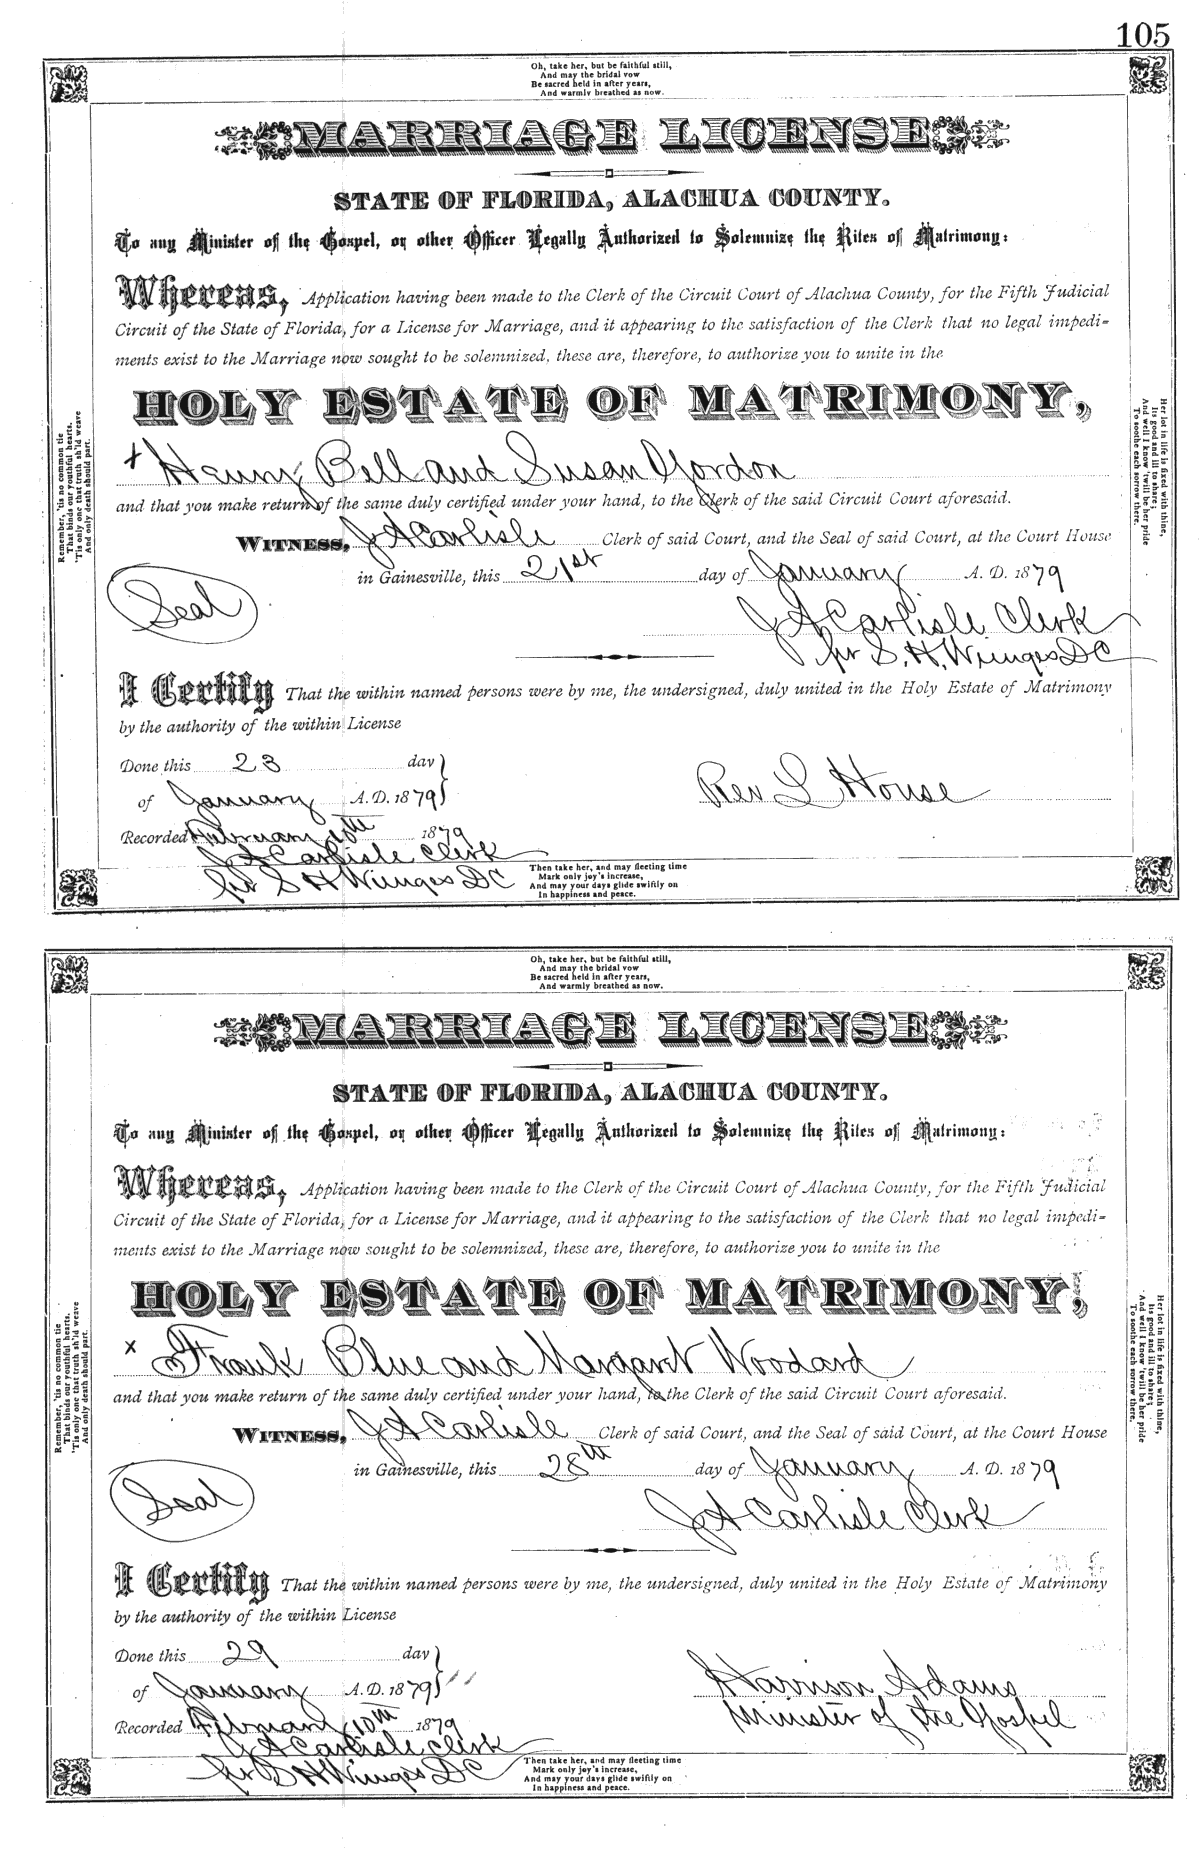 105
Oh, take her, but be faithful still,
And may the bridal vow
Be sacred held in after years,
And warmly breathed as now.
MARRIAGE LICENSE
STATE OF FLORIDA, ALACHUA COUNTY.
To any Minister of the Gospel, or other Officer Legally Authorized to Solemnize the Rites of Matrimony:
Whereas, Application having been made to the Clerk of the Circuit Court of Alachua County, for the Fifth Judicial
Circuit of the State of Florida, for a License for Marriage, and it appearing to the satisfaction of the Clerk that no legal impedi-
ments exist to the Marriage now sought to be solemnized, these are, therefore, to authorize you to unite in the
HOLY ESTATE OF MATRIMONY,
x Henry Bell and Susan Gordon
and that you make return of the same duly certified under your hand, to the Clerk of the said Circuit Court aforesaid.
WITNESS, J A Carlisle Clerk of said Court, and the Seal of said Court, at the Court House
in Gainesville, this 21st day of January A. D. 1879
Seal
J A Carlisle Clerk
pr S. H. Wienges DC
I Certify That the within named persons were by me, the undersigned, duly united in the Holy Estate of Matrimony
by the authority of the within License
Done this 23 day
of January A. D. 1879
Rev L House
Recorded February 10th 1879
J A Carlisle Clerk
pr S H Wienges DC
Then take her, and may fleeting time
Mark only joy's increase,
And may your days glide swiftly on
In happiness and peace.
Remember, 'tis no common tie
That binds our youthful hearts,
'Tis only one that truth sh'ld weave
And only death should part.
Her lot in life is fixed with thine,
Its good and ill to share;
And well I know 'twill be her pride
To soothe each sorrow there.
Oh, take her, but be faithful still,
And may the bridal vow
Be sacred held in after years,
And warmly breathed as now.
MARRIAGE LICENSE
STATE OF FLORIDA, ALACHUA COUNTY.
To any Minister of the Gospel, or other Officer Legally Authorized to Solemnize the Rites of Matrimony:
Whereas, Application having been made to the Clerk of the Circuit Court of Alachua County, for the Fifth Judicial
Circuit of the State of Florida, for a License for Marriage, and it appearing to the satisfaction of the Clerk that no legal impedi-
ments exist to the Marriage now sought to be solemnized, these are, therefore, to authorize you to unite in the
HOLY ESTATE OF MATRIMONY,
x Frank Blue and Margaret Woodard
and that you make return of the same duly certified under your hand, to the Clerk of the said Circuit Court aforesaid.
WITNESS, J A Carlisle Clerk of said Court, and the Seal of said Court, at the Court House
in Gainesville, this 28th day of January A. D. 1879
Seal
J A Carlisle Clerk
I Certify That the within named persons were by me, the undersigned, duly united in the Holy Estate of Matrimony
by the authority of the within License
Done this 29 day
of January A. D. 1879
Harrison Adams
Minister of the Gospel
Recorded February 10th 1879
J A Carlisle Clerk
pr S H Wienges DC
Then take her, and may fleeting time
Mark only joy's increase,
And may your days glide swiftly on
In happiness and peace.
Remember, 'tis no common tie
That binds our youthful hearts,
'Tis only one that truth sh'ld weave
And only death should part.
Her lot in life is fixed with thine,
Its good and ill to share;
And well I know 'twill be her pride
To soothe each sorrow there.